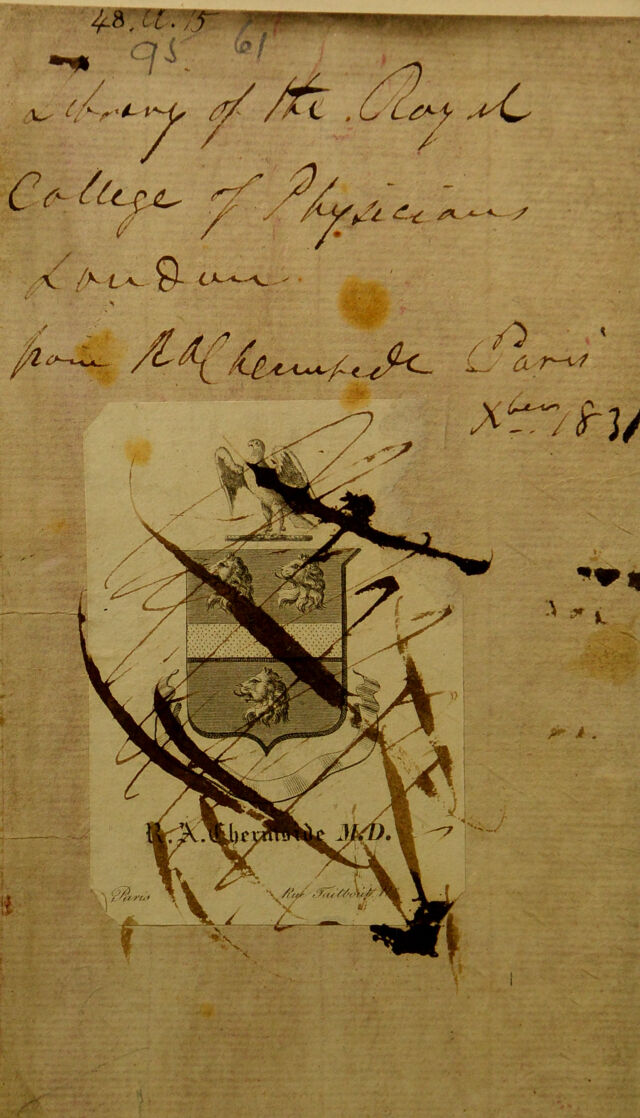 48.a.15
95 61
Library of the Royal
College of Physicians
London
from R A Chermside Paris
Xber 1831
R.A.Chermside M.D.
Paris Rue Taitbout,